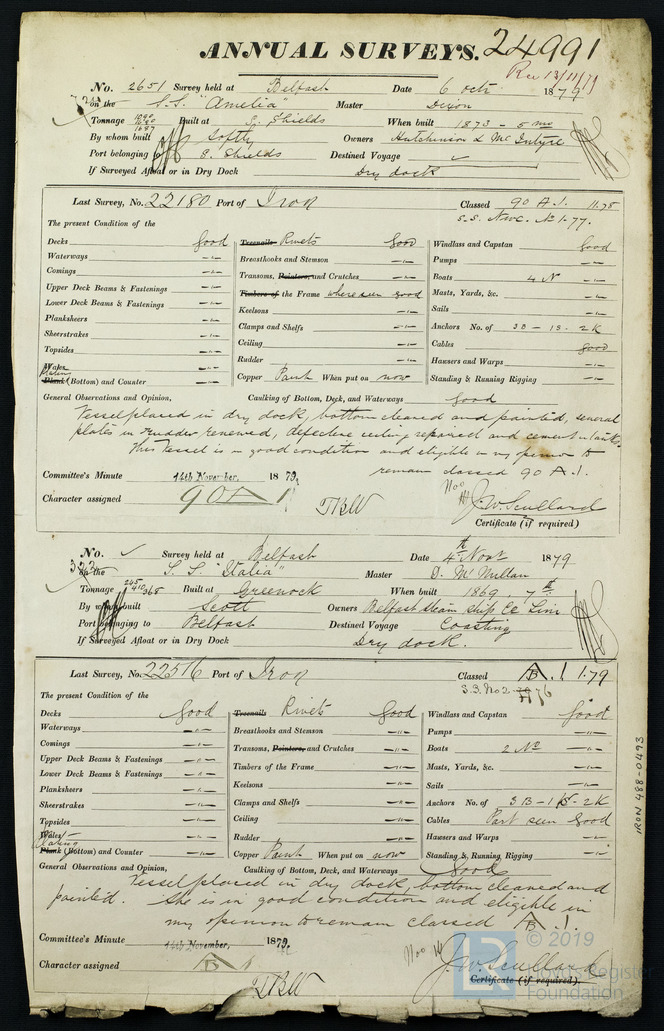 ANNUAL SURVEYS. 24991
Rec 13/11/79
No. 2651 Survey held at Belfast Date 6 octr. 1879
on the S.S. "Amelia" Master Dixon
Tonnage Built at S. Shields When built 1873 - 5 mo
By whom built Softly Owners Hutchinson & McIntyre
Port belonging to S. Shields Destined Voyage ✓
If Surveyed Afloat or in Dry Dock Dry dock
Last Survey, No. 22180 Port of Iron Classed 90 A.1. 11.78
S.S. No. 1-77.
The present Condition of the
Decks Good Treenails Rivets Good Windlass and Capstan Good
Waterways -"- Breasthooks and Stemson -"- Pumps -"-
Comings -"- Transoms, Pointers, and Crutches -"- Boats 4 No -"-
Upper Deck Beams & Fastenings -"- Timbers of the Frame where seen good Masts, Yards, &c. -"-
Lower Deck Beams & Fastenings -"- Keelsons -"- Sails -"-
Planksheers -"- Clamps and Shelfs -"- Anchors No. of 3B - 1S - 2K
Sheerstrakes -"- Ceiling -"- Cables good
Topsides -"- Rudder -"- Hawsers and Warps -"-
Wales
Plating
Plank (Bottom) and Counter -"- Copper Paint When put on now Standing & Running Rigging -"-
General Observations and Opinion, Caulking of Bottom, Deck, and Waterways Good
Vessel placed in dry dock, bottom cleaned and painted, several
plates in rudder renewed, defective ceiling repaired and cement in tanks.
This vessel is in good condition and eligible in my opinion to
remain classed 90 A.1.
Committee's Minute 14th November, 1879,
Character assigned 90 A 1
J.W. Scullard
Certificate (if required)
No. ✓ Survey held at Belfast Date 4th Novr 1879
on the S.S. "Italia" Master D. McMillan
Tonnage Built at Greenock When built 1869, 7th
By whom built Scott Owners Belfast Steam Ship Co Lim
Port belonging to Belfast Destined Voyage Coasting
If Surveyed Afloat or in Dry Dock Dry dock.
Last Survey, No. 22516 Port of Iron Classed A.1 1.79
S.S. No 2
The present Condition of the
Decks Good Treenails Rivets Good Windlass and Capstan Good
Waterways -"- Breasthooks and Stemson -"- Pumps -"-
Comings -"- Transoms, Pointers, and Crutches -"- Boats 2 No -"-
Upper Deck Beams & Fastenings -"- Timbers of the Frame -"- Masts, Yards, &c. -"-
Lower Deck Beams & Fastenings -"- Keelsons -"- Sails -"-
Planksheers -"- Clamps and Shelfs -"- Anchors No. of 3B - 1S - 2K
Sheerstrakes -"- Ceiling -"- Cables Part seen Good
Topsides -"- Rudder -"- Hawsers and Warps -"-
Wales
Plating
Plank (Bottom) and Counter -"- Copper Paint When put on now Standing & Running Rigging -"-
General Observations and Opinion, Caulking of Bottom, Deck, and Waterways Good
Vessel placed in dry dock, bottom cleaned and
painted. She is in good condition and eligible in
my opinion to remain classed A.1.
Committee's Minute 14th November, 1879,
Character assigned A 1
J.W. Scullard
Certificate (if required).
IRON 488-0493
LR © 2019
Lloyd's Register
Foundation